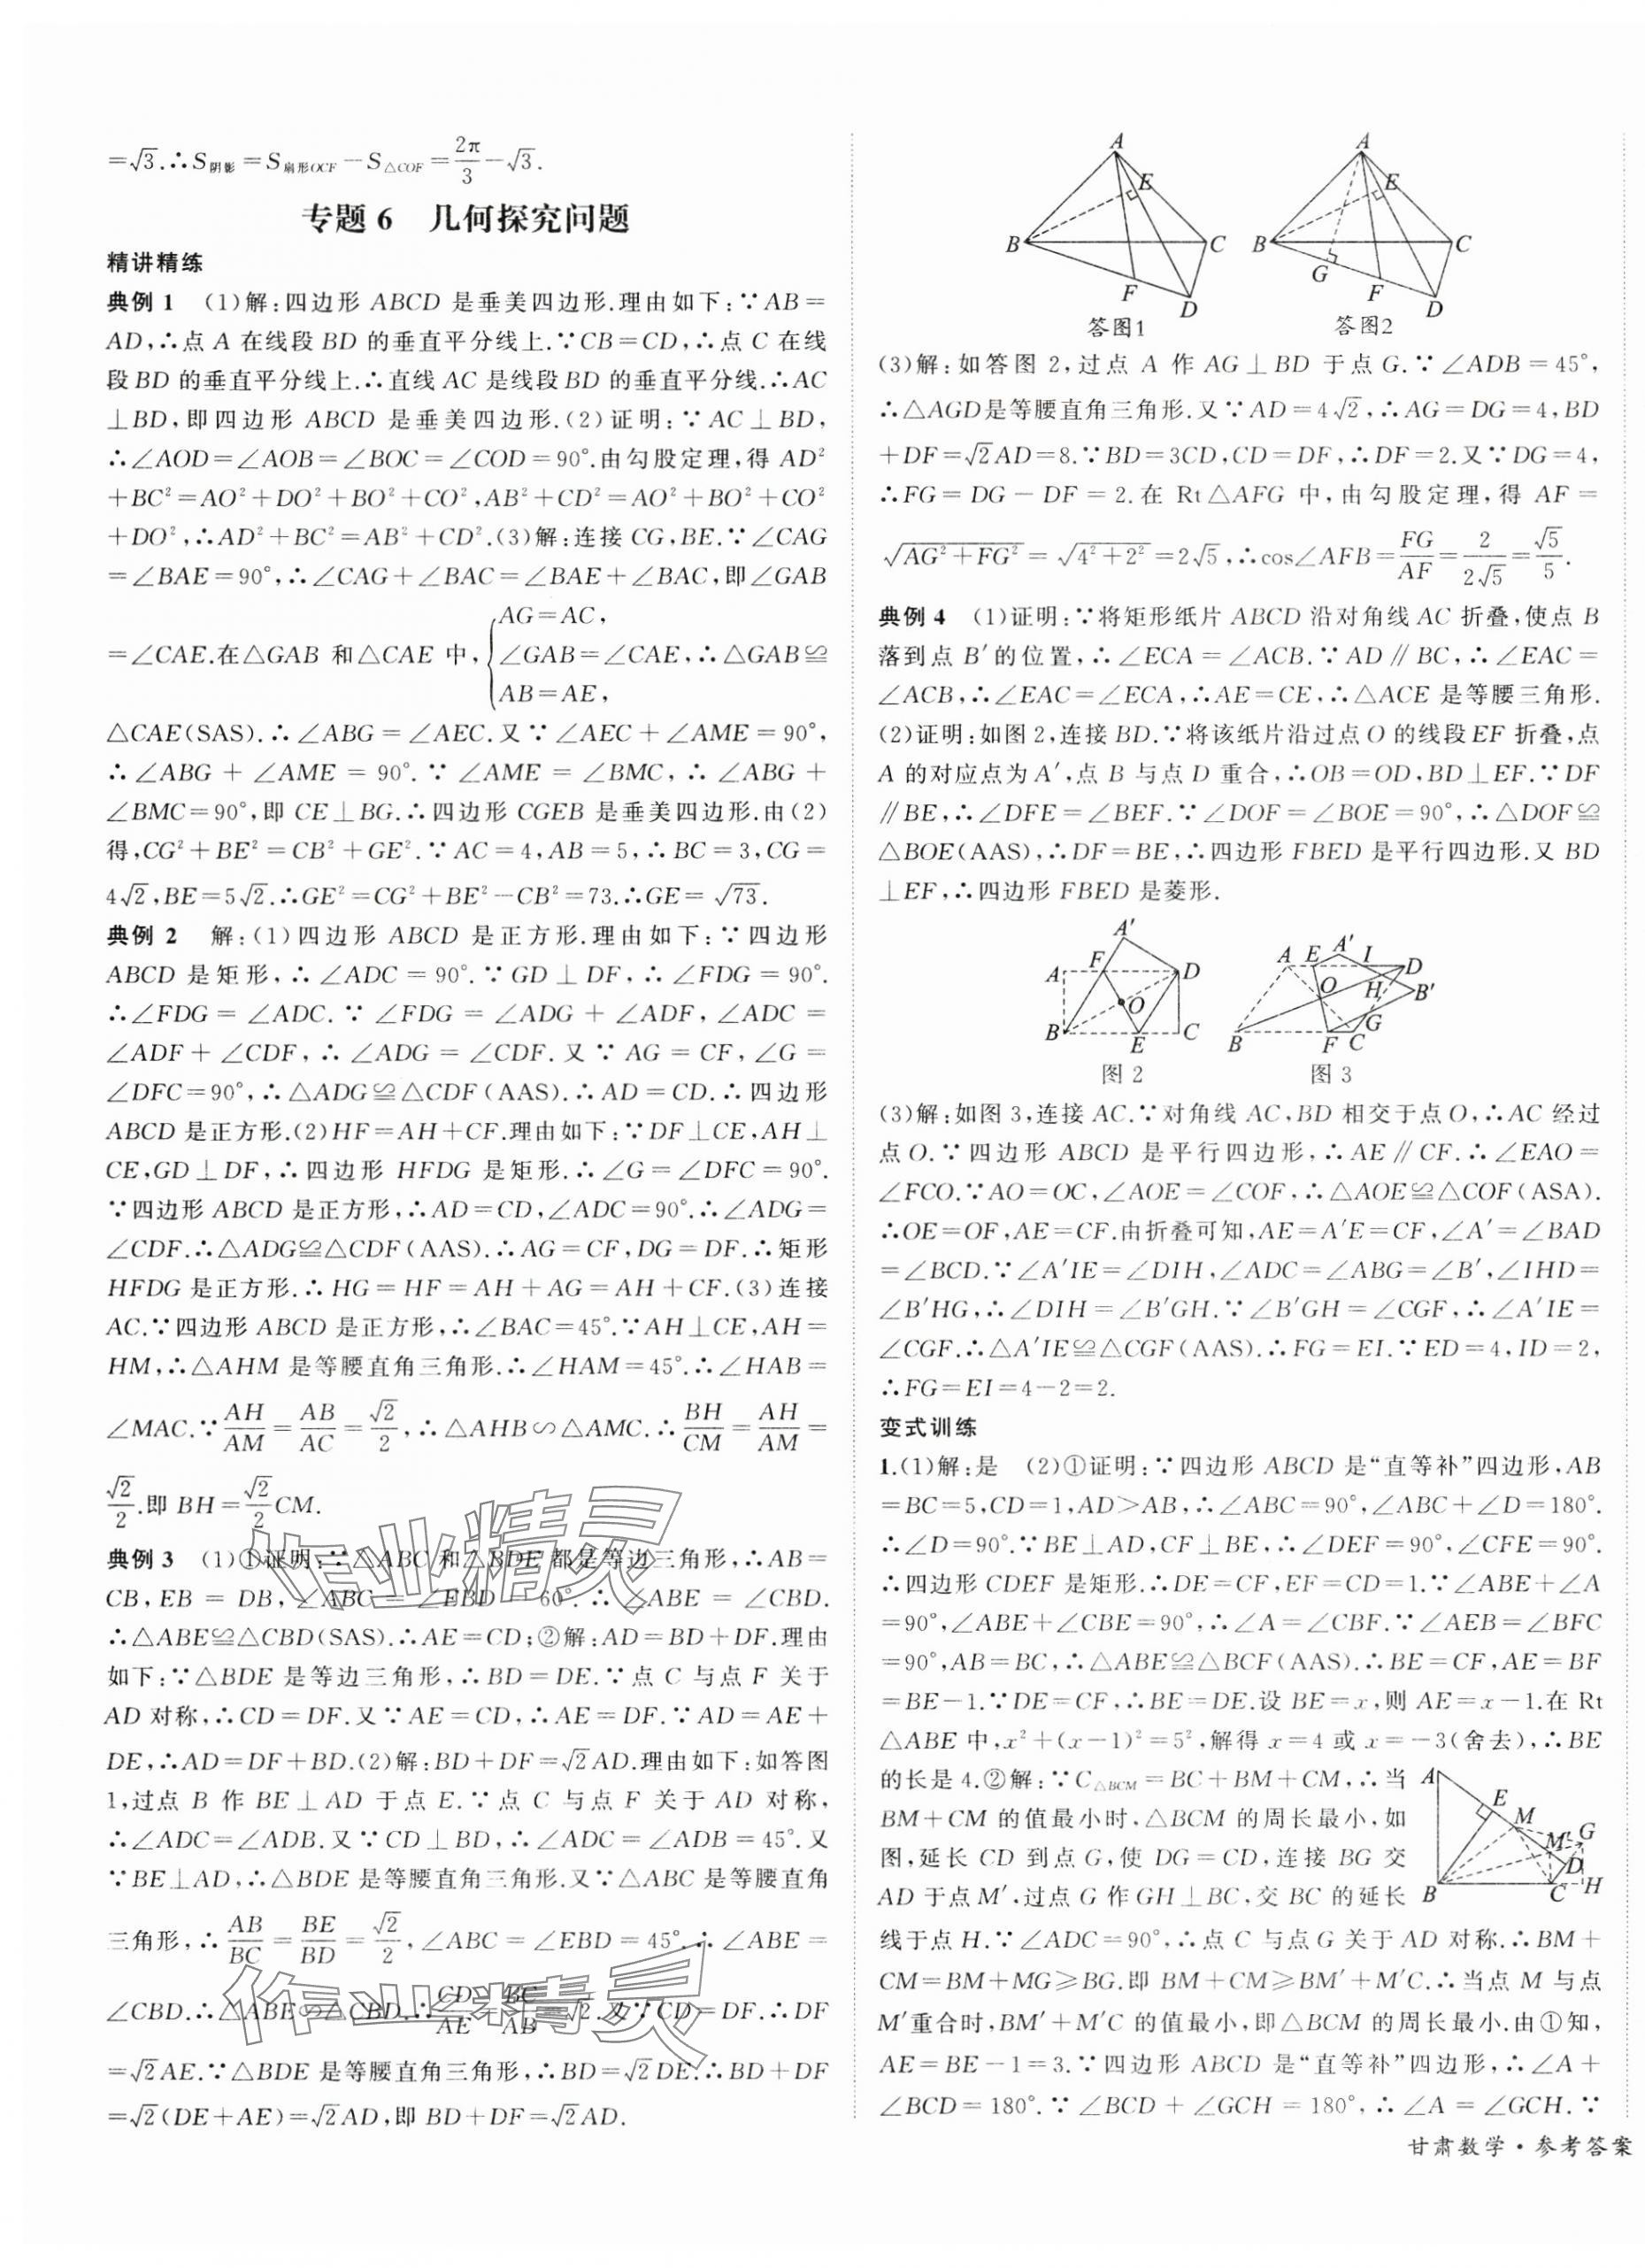 =√3.∴S阴影=S扇形OCF-S△COF=2π/3-√3.
专题6 几何探究问题
精讲精练
典例1 (1)解:四边形ABCD是垂美四边形.理由如下:∵AB=
AD,∴点A在线段BD的垂直平分线上.∵CB=CD,∴点C在线
段BD的垂直平分线上.∴直线AC是线段BD的垂直平分线.∴AC
⊥BD,即四边形ABCD是垂美四边形.(2)证明:∵AC⊥BD,
∴∠AOD=∠AOB=∠BOC=∠COD=90°.由勾股定理,得AD²
+BC²=AO²+DO²+BO²+CO²,AB²+CD²=AO²+BO²+CO²
+DO²,∴AD²+BC²=AB²+CD².(3)解:连接CG,BE.∵∠CAG
=∠BAE=90°,∴∠CAG+∠BAC=∠BAE+∠BAC,即∠GAB
=∠CAE.在△GAB和△CAE中,{AG=AC, ∠GAB=∠CAE, AB=AE, ∴△GAB≌
△CAE(SAS).∴∠ABG=∠AEC.又∵∠AEC+∠AME=90°,
∴∠ABG+∠AME=90°.∵∠AME=∠BMC,∴∠ABG+
∠BMC=90°,即CE⊥BG.∴四边形CGEB是垂美四边形.由(2)
得,CG²+BE²=CB²+GE².∵AC=4,AB=5,∴BC=3,CG=
4√2,BE=5√2.∴GE²=CG²+BE²-CB²=73.∴GE=√73.
典例2 解:(1)四边形ABCD是正方形.理由如下:∵四边形
ABCD是矩形,∴∠ADC=90°.∵GD⊥DF,∴∠FDG=90°.
∴∠FDG=∠ADC.∵∠FDG=∠ADG+∠ADF,∠ADC=
∠ADF+∠CDF,∴∠ADG=∠CDF.又∵AG=CF,∠G=
∠DFC=90°,∴△ADG≌△CDF(AAS).∴AD=CD.∴四边形
ABCD是正方形.(2)HF=AH+CF.理由如下:∵DF⊥CE,AH⊥
CE,GD⊥DF,∴四边形HFDG是矩形.∴∠G=∠DFC=90°.
∵四边形ABCD是正方形,∴AD=CD,∠ADC=90°.∴∠ADG=
∠CDF.∴△ADG≌△CDF(AAS).∴AG=CF,DG=DF.∴矩形
HFDG是正方形.∴HG=HF=AH+AG=AH+CF.(3)连接
AC.∵四边形ABCD是正方形,∴∠BAC=45°.∵AH⊥CE,AH=
HM,∴△AHM是等腰直角三角形.∴∠HAM=45°.∴∠HAB=
∠MAC.∵AH/AM=AB/AC=√2/2,∴△AHB∽△AMC.∴BH/CM=AH/AM=
√2/2.即BH=√2/2CM.
典例3 (1)①证明:∵△ABC和△BDE都是等边三角形,∴AB=
CB,EB=DB,∠ABC=∠EBD=60°.∴∠ABE=∠CBD.
∴△ABE≌△CBD(SAS).∴AE=CD;②解:AD=BD+DF.理由
如下:∵△BDE是等边三角形,∴BD=DE.∵点C与点F关于
AD对称,∴CD=DF.又∵AE=CD,∴AE=DF.∵AD=AE+
DE,∴AD=DF+BD.(2)解:BD+DF=√2AD.理由如下:如答图
1,过点B作BE⊥AD于点E.∵点C与点F关于AD对称,
∴∠ADC=∠ADB.又∵CD⊥BD,∴∠ADC=∠ADB=45°.又
∵BE⊥AD,∴△BDE是等腰直角三角形.又∵△ABC是等腰直角
三角形,∴AB/BC=BE/BD=√2/2,∠ABC=∠EBD=45°.∴∠ABE=
∠CBD.∴△ABE∽△CBD.∴CD/AE=BC/AB=√2.又∵CD=DF.∴DF
=√2AE.∵△BDE是等腰直角三角形,∴BD=√2DE.∴BD+DF
=√2(DE+AE)=√2AD,即BD+DF=√2AD.
A E B C F D 答图1
A E B C G F D 答图2
(3)解:如答图2,过点A作AG⊥BD于点G.∵∠ADB=45°,
∴△AGD是等腰直角三角形.又∵AD=4√2,∴AG=DG=4,BD
+DF=√2AD=8.∵BD=3CD,CD=DF,∴DF=2.又∵DG=4,
∴FG=DG-DF=2.在Rt△AFG中,由勾股定理,得AF=
√(AG²+FG²)=√(4²+2²)=2√5,∴cos∠AFB=FG/AF=2/(2√5)=√5/5.
典例4 (1)证明:∵将矩形纸片ABCD沿对角线AC折叠,使点B
落到点B′的位置,∴∠ECA=∠ACB.∵AD∥BC,∴∠EAC=
∠ACB,∴∠EAC=∠ECA,∴AE=CE,∴△ACE是等腰三角形.
(2)证明:如图2,连接BD.∵将该纸片沿过点O的线段EF折叠,点
A的对应点为A′,点B与点D重合,∴OB=OD,BD⊥EF.∵DF
∥BE,∴∠DFE=∠BEF.∵∠DOF=∠BOE=90°,∴△DOF≌
△BOE(AAS),∴DF=BE,∴四边形FBED是平行四边形.又BD
⊥EF,∴四边形FBED是菱形.
A′ F A D O B E C 图2
A′ A E I D H B′ O G B F C 图3
(3)解:如图3,连接AC.∵对角线AC,BD相交于点O,∴AC经过
点O.∵四边形ABCD是平行四边形,∴AE∥CF.∴∠EAO=
∠FCO.∵AO=OC,∠AOE=∠COF,∴△AOE≌△COF(ASA).
∴OE=OF,AE=CF.由折叠可知,AE=A′E=CF,∠A′=∠BAD
=∠BCD.∵∠A′IE=∠DIH,∠ADC=∠ABG=∠B′,∠IHD=
∠B′HG,∴∠DIH=∠B′GH.∵∠B′GH=∠CGF,∴∠A′IE=
∠CGF.∴△A′IE≌△CGF(AAS).∴FG=EI.∵ED=4,ID=2,
∴FG=EI=4-2=2.
变式训练
1.(1)解:是 (2)①证明:∵四边形ABCD是“直等补”四边形,AB
=BC=5,CD=1,AD>AB,∴∠ABC=90°,∠ABC+∠D=180°.
∴∠D=90°.∵BE⊥AD,CF⊥BE,∴∠DEF=90°,∠CFE=90°.
∴四边形CDEF是矩形.∴DE=CF,EF=CD=1.∵∠ABE+∠A
=90°,∠ABE+∠CBE=90°,∴∠A=∠CBF.∵∠AEB=∠BFC
=90°,AB=BC,∴△ABE≌△BCF(AAS).∴BE=CF,AE=BF
=BE-1.∵DE=CF,∴BE=DE.设BE=x,则AE=x-1.在Rt
△ABE中,x²+(x-1)²=5²,解得x=4或x=-3(舍去),∴BE
的长是4.②解:∵C△BCM=BC+BM+CM,∴当
BM+CM的值最小时,△BCM的周长最小,如
图,延长CD到点G,使DG=CD,连接BG交
AD于点M′,过点G作GH⊥BC,交BC的延长
A E M M′ G D B C H
线于点H.∵∠ADC=90°,∴点C与点G关于AD对称.∴BM+
CM=BM+MG≥BG.即BM+CM≥BM′+M′C.∴当点M与点
M′重合时,BM′+M′C的值最小,即△BCM的周长最小.由①知,
AE=BE-1=3.∵四边形ABCD是“直等补”四边形,∴∠A+
∠BCD=180°.∵∠BCD+∠GCH=180°,∴∠A=∠GCH.∵
甘肃数学·参考答案
作业精灵
作业精灵